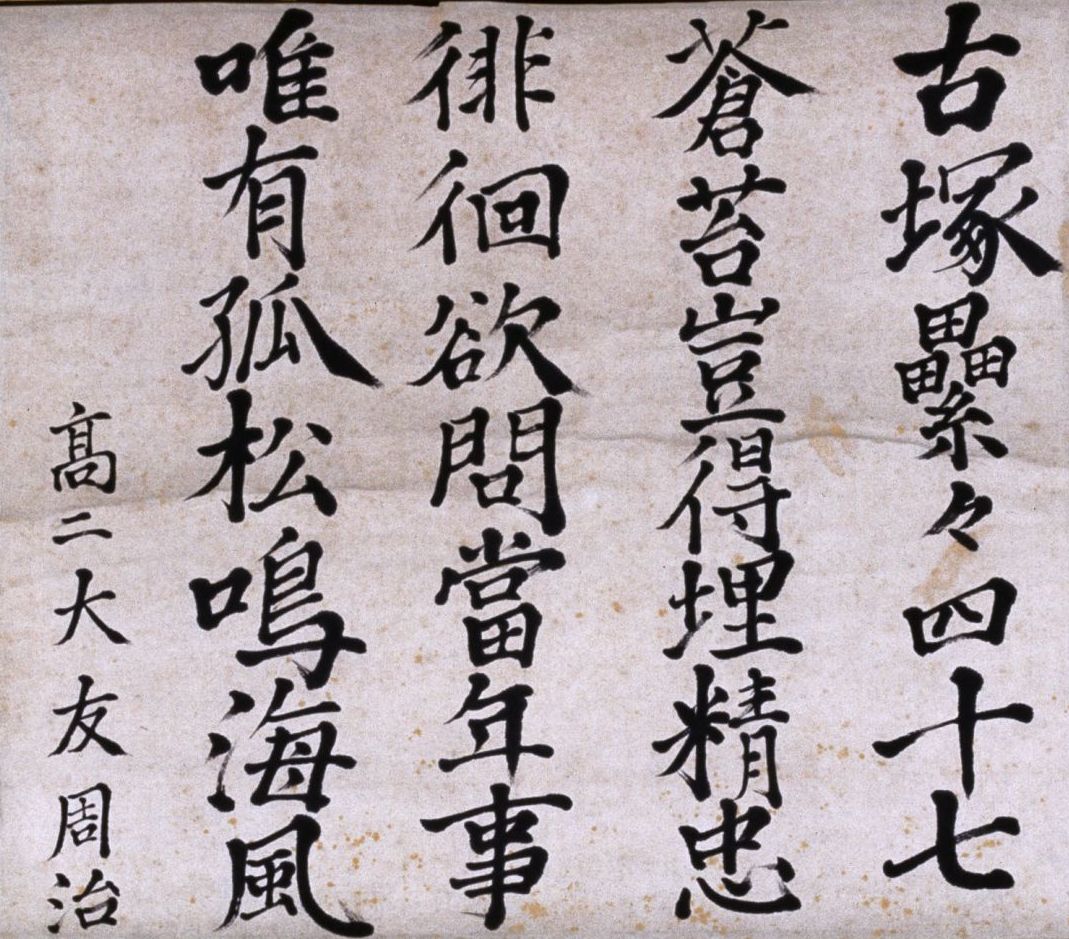 古塚纍々四十七
蒼苔豈得埋精忠
徘徊欲問當年事
唯有孤松鳴海風
髙二大友周治